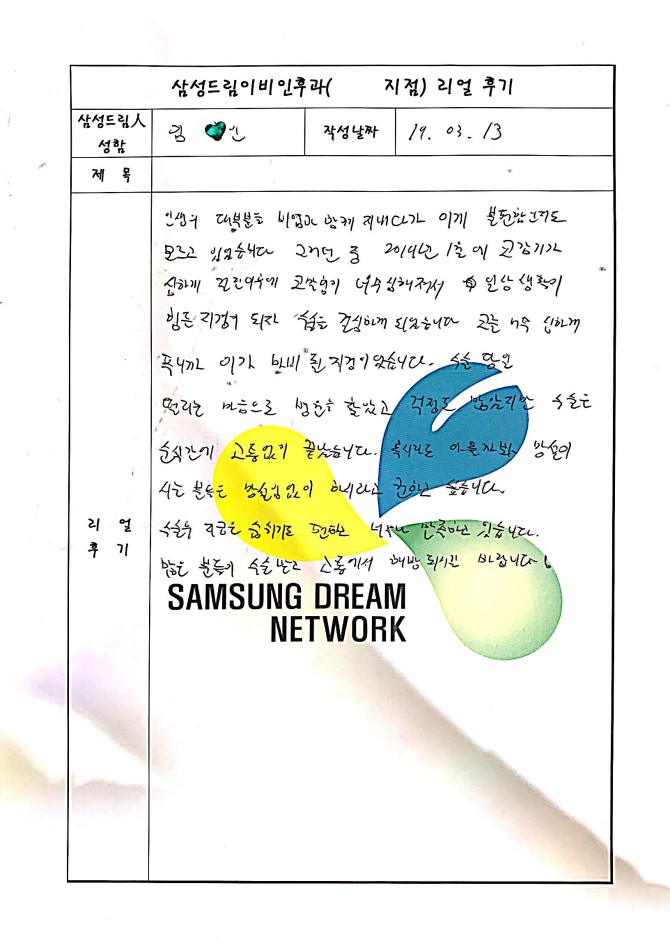 삼성드림이비인후과( 지점) 리얼 후기
삼성드림人 성함
김 인
작성날짜
19. 03. 13
제 목
리 얼 후 기
인생의 대부분을 비염과 함께 지내다가 이게 불편한건지도
모르고 있었습니다 그러던 중 2019년 1월에 코감기가
심하게 걸린이후에 코막힘이 너무심해져서 일상생활이
힘든 지경이 되자 수술을 결심하게 되었습니다 코를 너무 심하게
푸니까 이가 마비 될 지경이었습니다. 수술 당일
떨리는 마음으로 병원을 찾았고 걱정도 많았지만 수술은
순식간에 고통없이 끝났습니다. 혹시라도 아플지봐 망설이
시는 분들은 망설임없이 하시라고 권하고 싶습니다.
수술후 지금은 숨쉬기도 편하고 너무나 만족하고 있습니다.
많은 분들이 수술받고 고통에서 해방되시길 바랍니다!
SAMSUNG DREAM
NETWORK